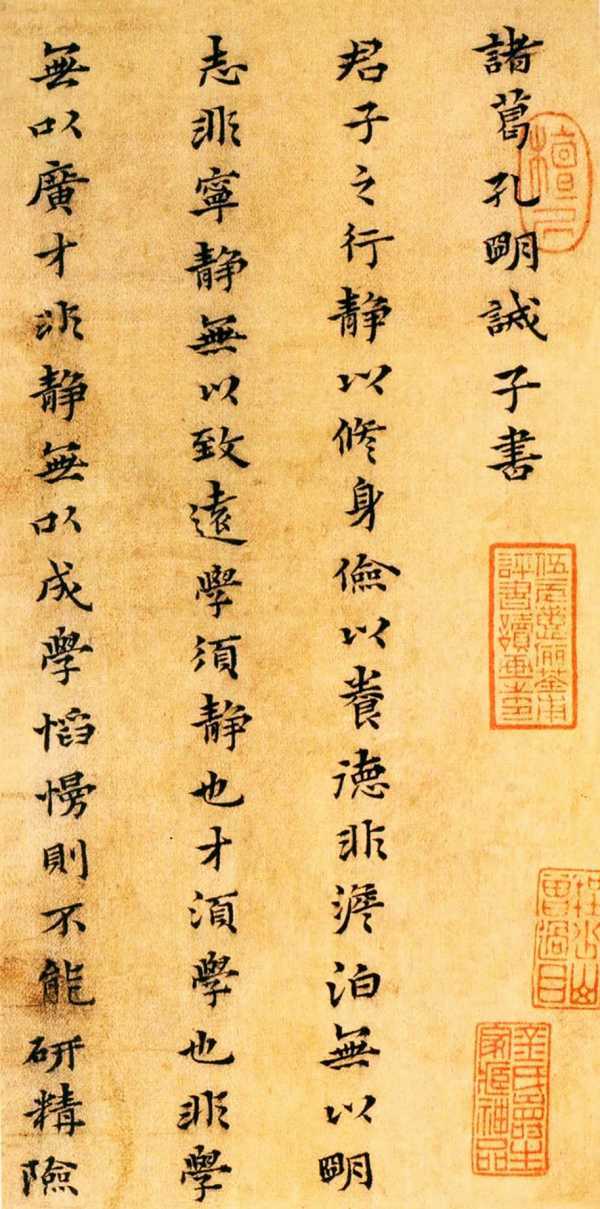 諸葛孔明誡子書
君子之行静以修身儉以養德非澹泊無以明
志非寧静無以致遠學須静也才須學也非學
無以廣才非静無以成學慆慢則不能研精險